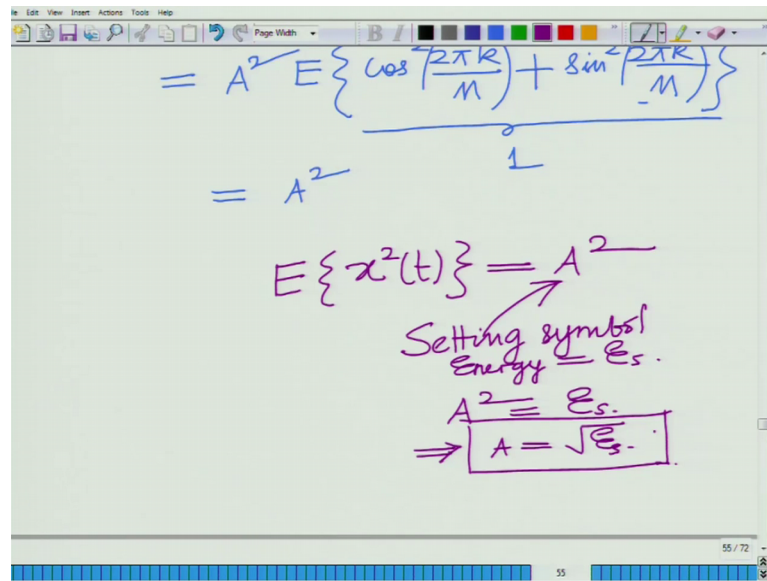 le Edit View Insert Actions Tools Help
Page Width B I
= A² E{cos²(2πk/M) + sin²(2πk/M)}
1
= A²
E{x²(t)} = A²
Setting symbol
Energy = Es.
A² = Es.
⇒ A = √Es.
55 / 72
55